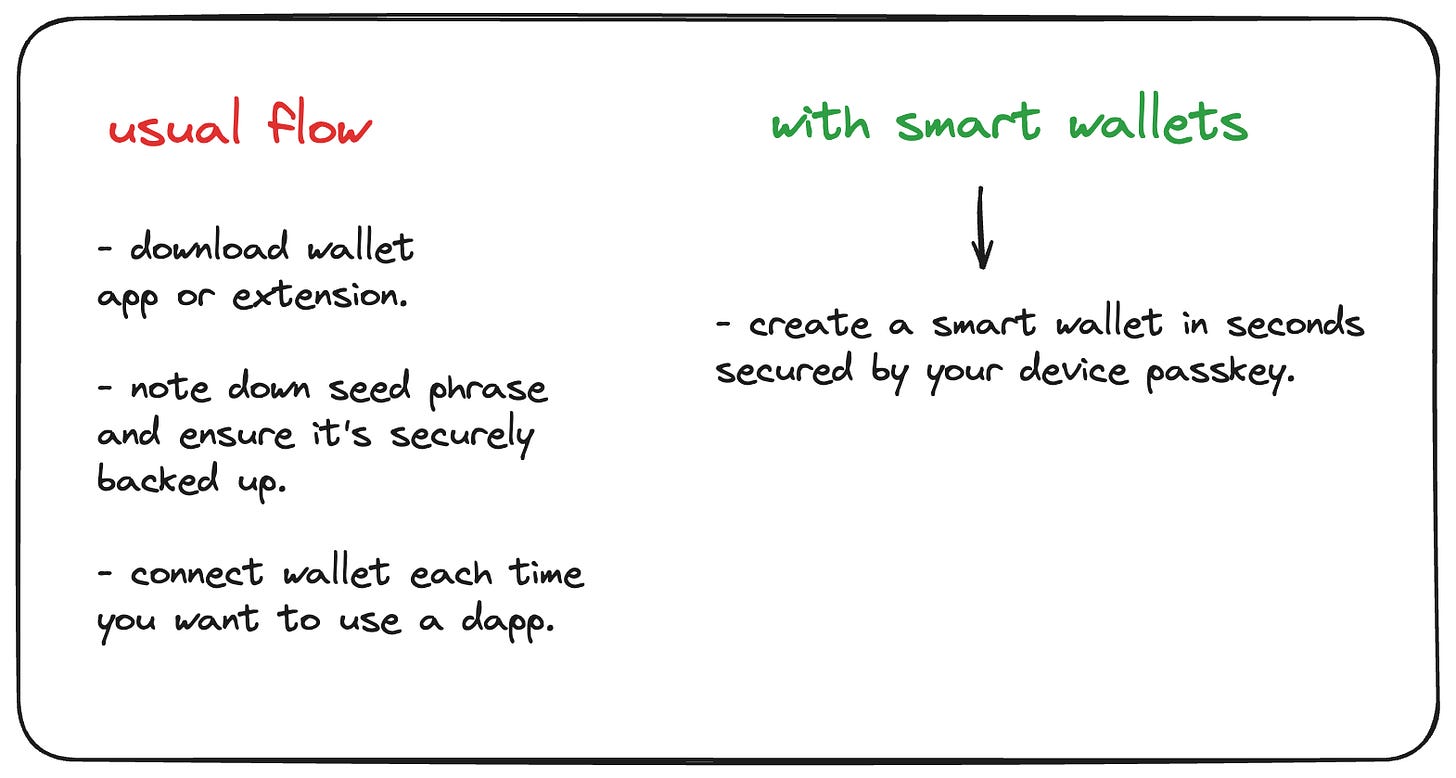 usual flow
- download wallet
app or extension.
- note down seed phrase
and ensure it's securely
backed up.
- connect wallet each time
you want to use a dapp.
with smart wallets
- create a smart wallet in seconds
secured by your device passkey.